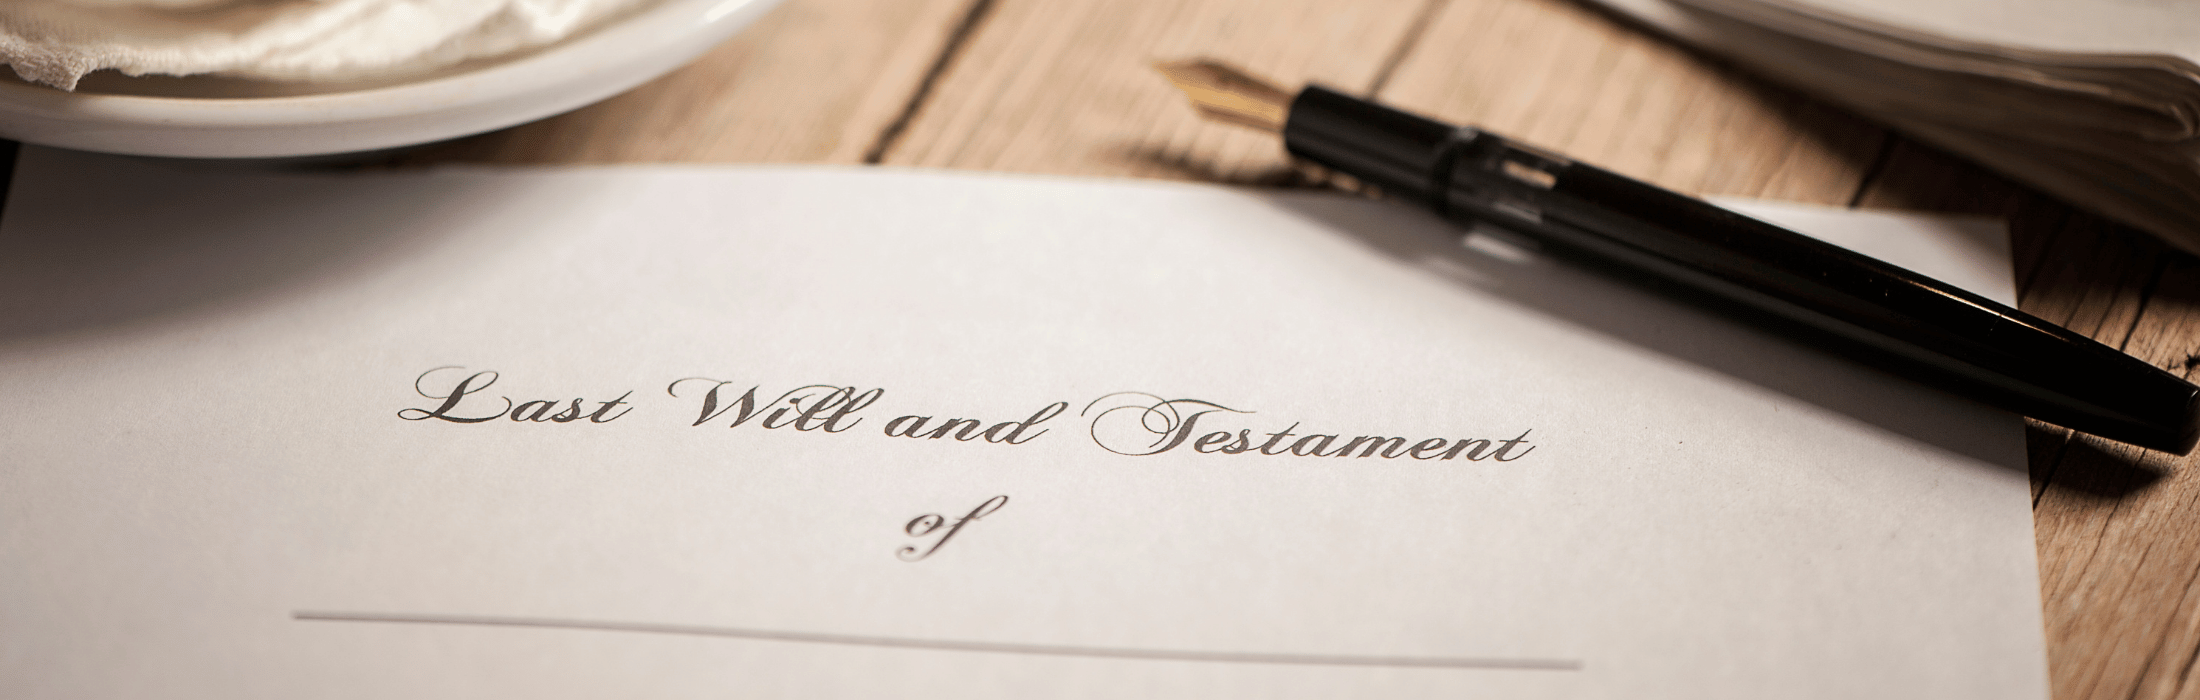 Last Will and Testament
of